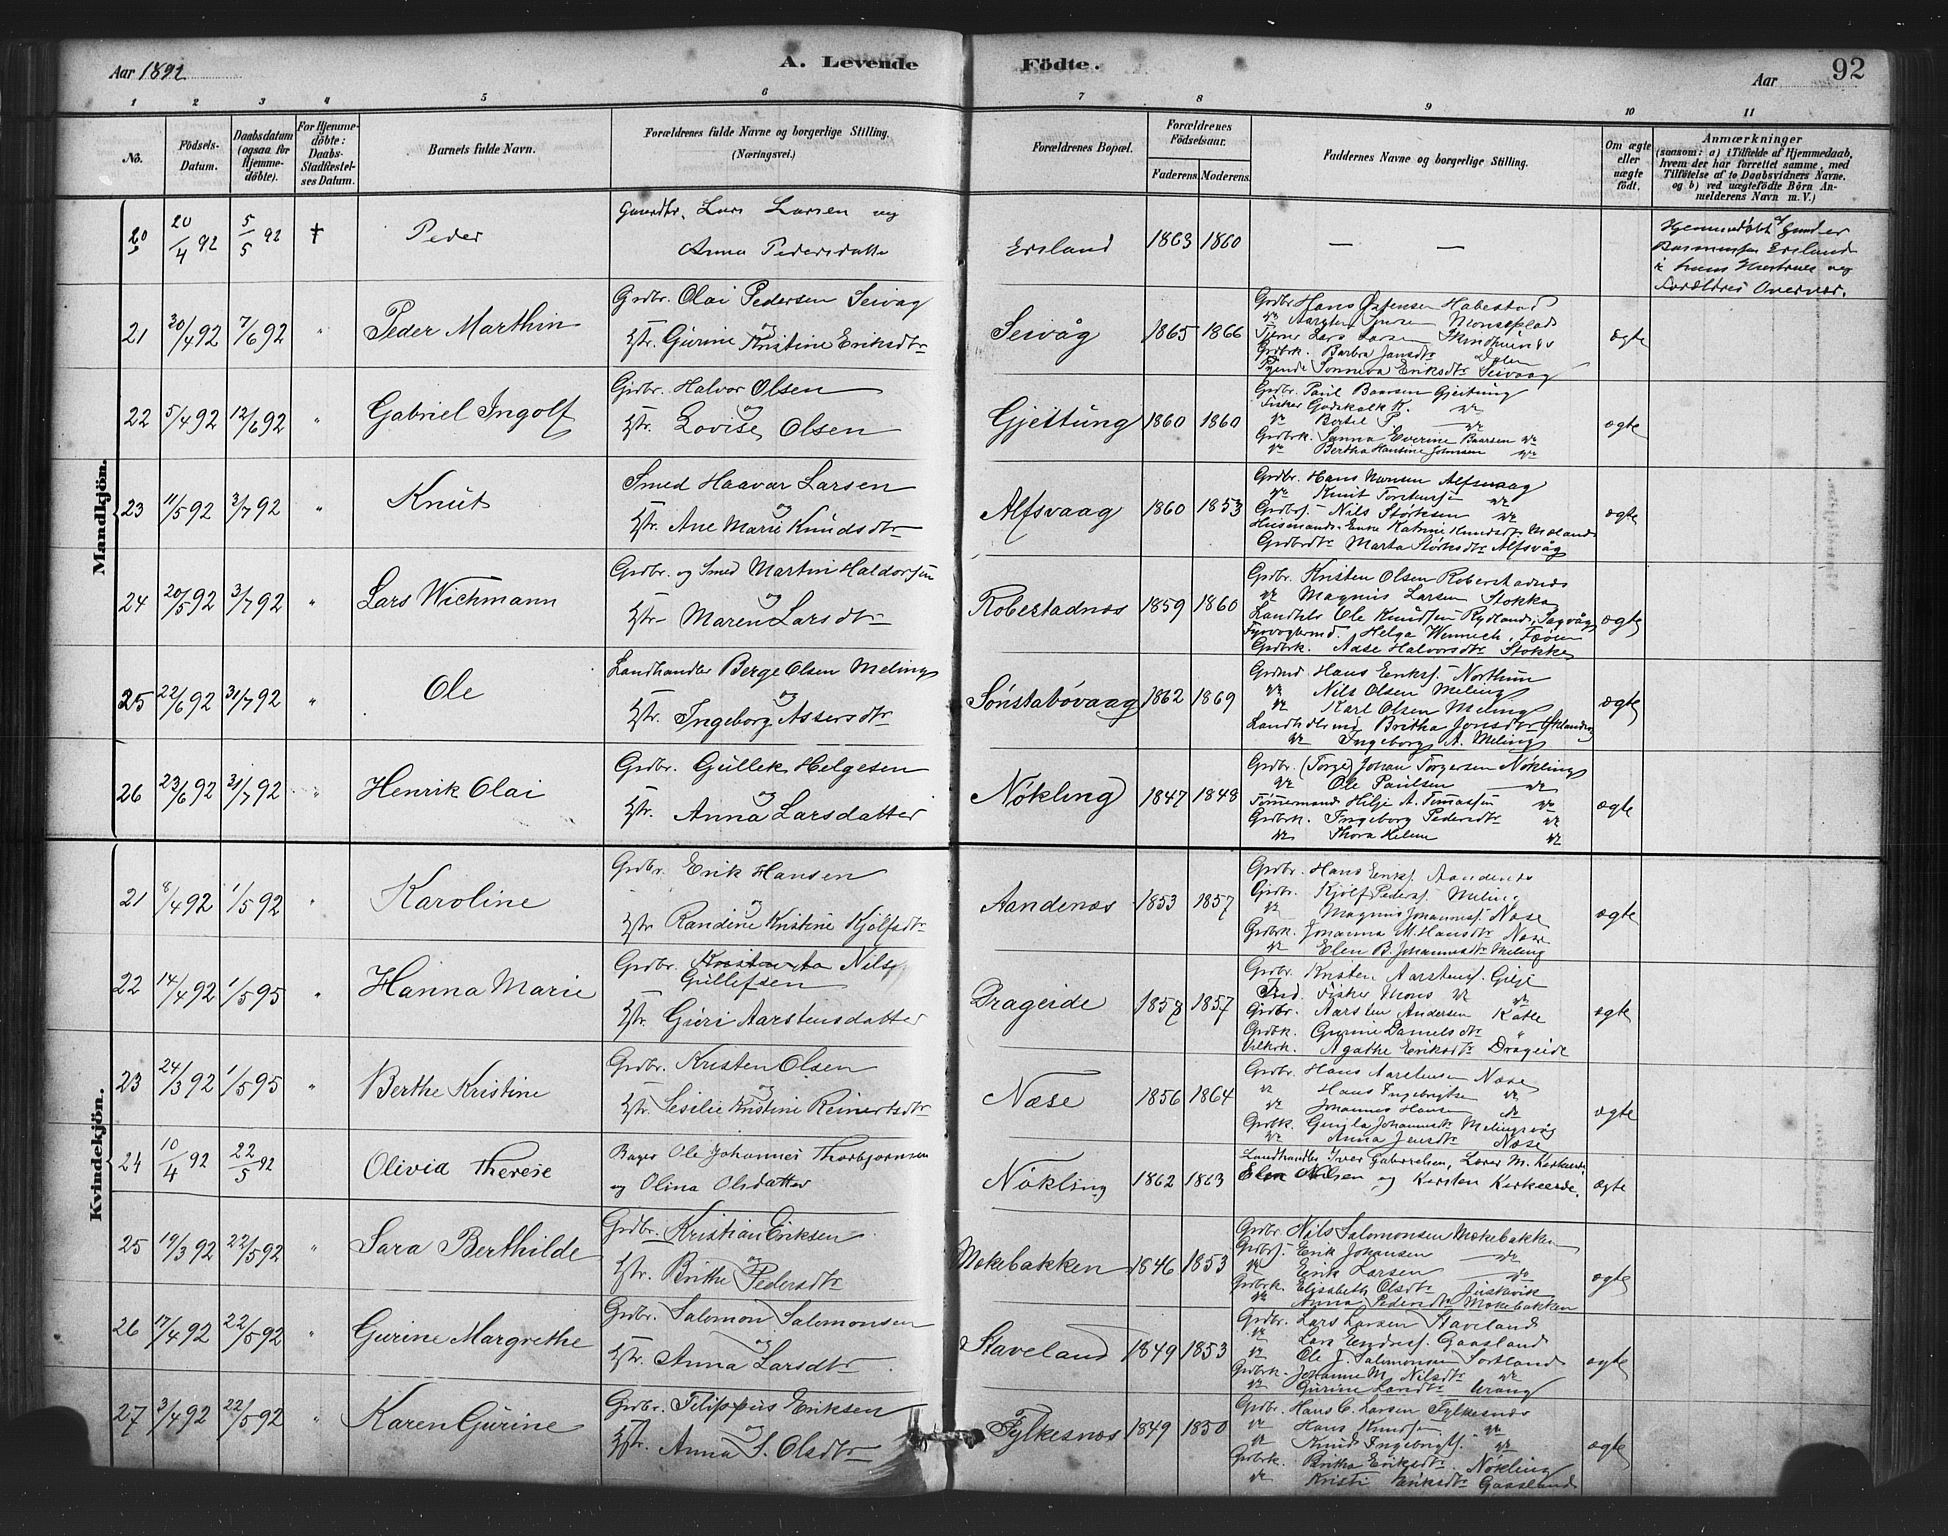 Aar 1892
A. Levende
Födte.
Aar
92
1 2 3 4 5 6 7 8 9 10 11
No.
Födsels-
Datum.
Daabsdatum
(ogsaa for
Hjemme-
döbte).
For Hjemme-
döbte:
Daabs-
Stadfæstel-
ses Datum.
Barnets fulde Navn.
Forældrenes fulde Navne og borgerlige Stilling.
(Næringsvei.)
Forældrenes Bopæl.
Forældrenes
Födselsaar.
Faderens. Moderens.
Faddernes Navne og borgerlige Stilling.
Om ægte
eller
uægte
födt.
Anmærkninger
(saasom: a) i Tilfælde af Hjemmedaab,
hvem der har forrettet samme, med
Tilföielse af to Daabsvidners Navne.
og b) ved uægtefödte Börn An-
melderens Navn m. V.)
Mandkjön.
20 20/4 92 5/5 92 † Peder
Gaardbr. Lars Larsen og
Anna Pedersdatter
Ersland 1863 1860 — —
Hjemmedøbt af Gunder
Rasmussen Ersland
i hans Hustrues og
Forældres Overvær.
21 30/4 92 7/6 92 " Peder Marthin
Grdbr. Olai Pedersen Seivag
og
Hstr. Gurine Kristine Eriksdtr
Seivåg 1865 1866
Grdbr Hans Habestad
Lars Larsen
Grdbrk. Barbra Jansdtr Dalen
Pigende Sønneva Eriksdtr Seivaag
ægte
22 5/4 92 12/6 92 " Gabriel Ingolf
Grdbr. Halvor Olsen
og
Hstr. Lovise Olsen
Gjettung 1860 1860
Grdbr. Paul Baarsen Gjettung
Fisker Godskalk K. do
do Bertel P. do
Grdbrk. Sanna Everine Baarsen do
do Bertha Hansine Johnsen do
ægte
23 11/5 92 3/7 92 " Knut
Smed Haavar Larsen
og
Hstr. Ane Marie Knudsdtr
Alfsvaag 1860 1853
Grdbr. Hans Monsen Alfsvaag
do Knut Torstensen do
Grdbrs. Nils Størksen do
Husmands Enke Katrine Knudsdtr Moland
Grdbrdtr Marta Størksdtr Alfsvåg
ægte
24 20/5 92 3/7 92 " Lars Wichmann
Grdbr. og Smed Martin Haldorsen
og
Hstr- Maren Larsdtr
Robestadnæs 1859 1860
Grdbr. Kristen Olsen Roberstadnæs
do Magnus Larsen Stokka
Landhdl. Ole Knudsen Rydland, Sagvåg
Fyrvogtermd. Helga Wennech, Fæøen
Grdbrk. Aase Halvorsdtr Stokke
ægte
25 22/6 92 31/7 92 " Ole
Landhandler Berge Olsen Meling
og
Hstr. Ingeborg Assersdtr
Sønstabøvaag 1862 1869
Grdmd Hans Eriks. Northun
do Nils Olsen Meling
do Karl Olsen Meling
Britha Jonsdtr
do Ingeborg A. Meling
ægte
26 23/6 92 31/7 92 " Henrik Olai
Grdbr. Gullek Helgesen
og
Hstr. Anna Larsdatter
Nökling 1847 1848
Grdbr. (Torge) Johan Torgersen Nøkling
do Ole Paulsen do
Tømmermand Hilje A. Timassen do
Grdbrk. Ingeborg Pedersdtr do
do Thora Helene do
ægte
Kvindekjön.
21 8/4 92 1/5 92 " Karoline
Grdbr. Erik Hansen
og
Hstr Randine Kristine Kjölfsdtr
Aandenæs 1853 1857
Grdbr. Hans Eriks. Aandenæs
Grdbr. Kjölf Peders. Meling
do Magnus Johanness. Næse
Grdbrk. Johanna M. Hansdtr Næse
do Elen B. Johannesdtr Meling
ægte
22 14/4 92 1/5 95 " Hanna Marie
Grdbr. Nils
Gullefsen
Hstr. Guri Aarstensdatter
Drageide 1857 1857
Grdbr. Kristen Aarstens. Gleje
Ind. Fisker Mons do do
Grdbr. Aarsten Andersen Katle
Grdbk. Gurine Danielsdtr "
Agathe Eriksdtr Drageide
ægte
23 24/3 92 1/5 95 " Berthe Kristine
Grdbr. Kristen Olsen
og
Hstr Sesilie Kristine Reinertsdtr
Næse 1856 1864
Grdbr. Hans Aarstensen Næse
do Hans Ingebrigtsen do
do Johannes Hansen do
Grdbk. Gunla Johannesdtr Melingsvåg
do Anna Jensdtr Næse
ægte
24 10/4 92 22/5 92 Olivia Therese
Bager Ole Johannes Thorbjørnsen
og Olina Olsdatter
Nökling 1862 1863
Landhandler Iver Gabrielsen, Lærer M. Kirkeerde
Elen Nilsen og Kirsten Kirkeerde.
ægte
25 19/3 92 22/5 92 " Sara Berthilde
Grdbr. Kristian Eriksen
og
Hstr. Brithe Pedersdtr
Møkebakken 1846 1853
Grdbr Nils Salomonsen Møkebakken
Grdbrs. Erik Johansen do
do Erik Larsen do
Grdbrk. Elisabeth Olsdtr Gustavik
do Anna Pedersdtr Møkebakken
ægte
26 17/4 92 22/5 92 " Gurine Margrethe
Grdbr. Salomon Salomonsen
og
Hstr. Anna Larsdtr
Staveland 1849 1853
Grdbr. Lars Larsen Staveland
do Lars Endres. Gaasland
do Ole J. Salomonsen Sortland
Grdbrk. Johanne M. Nilsdtr do
do Gurine Larsdtr Urang
ægte
27 3/4 92 22/5 92 " Karen Gurine
Grdbr. Filippus Eriksen
og
Hstr. Anna S. Olsdtr
Fylkesnæs 1849 1850
Grdbr. Hans C. Larsen Fylkesnæs
do Hans Knudsen do
do Knud Ingebrigts. do
Grdbrk. Britha Eriksdtr Nøkling
do Kristi Eriksdtr Gaasland
ægte